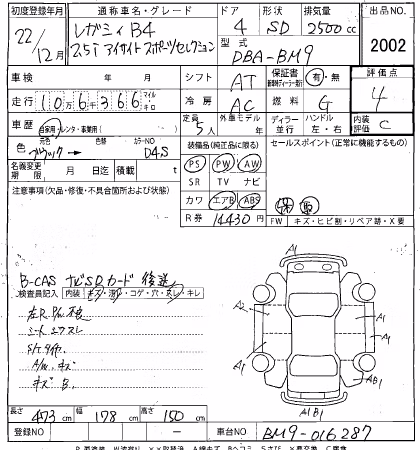 初度登録年月 通称車名・グレード ドア 形状 排気量 出品NO.
22/12月 レガシィ B4 4 SD 2500cc
2.5i アイサイト スポーツセレクション 型式 DBA-BM9 2002
車検 年 月 シフト AT 保証書 有・無 評価点
走行 10万6千366 マイル キロ 冷房 AC 燃料 G 4
車歴 自家用・レンタ・事業用( ) 定員 5人 外車モデル 年 ディーラー 並行 ハンドル 左・右 内装評価 C
色 元色 ブラック → 色替 カラーNO D4S 装備品(純正品に限る) セールスポイント(正常に機能するもの)
名義変更期限 月 日迄 積載 t PS PW AW
注意事項(欠品・修復・不具合箇所および状態) SR TV ナビ
カワ エアB ABS
R券 14430円 FW キズ・ヒビ割・リペア跡・X要
B-CAS ナビSDカード 後送
検査員記入 内装 キズ・汚レ・コゲ・穴・スレ・キレ
シート
A/W キズ
キズ B.
A1
A2 A1
A1
A1 AB1
A1B1
長さ 473cm 幅 178cm 高さ 150cm
登録NO ― 車台NO BM9-016287